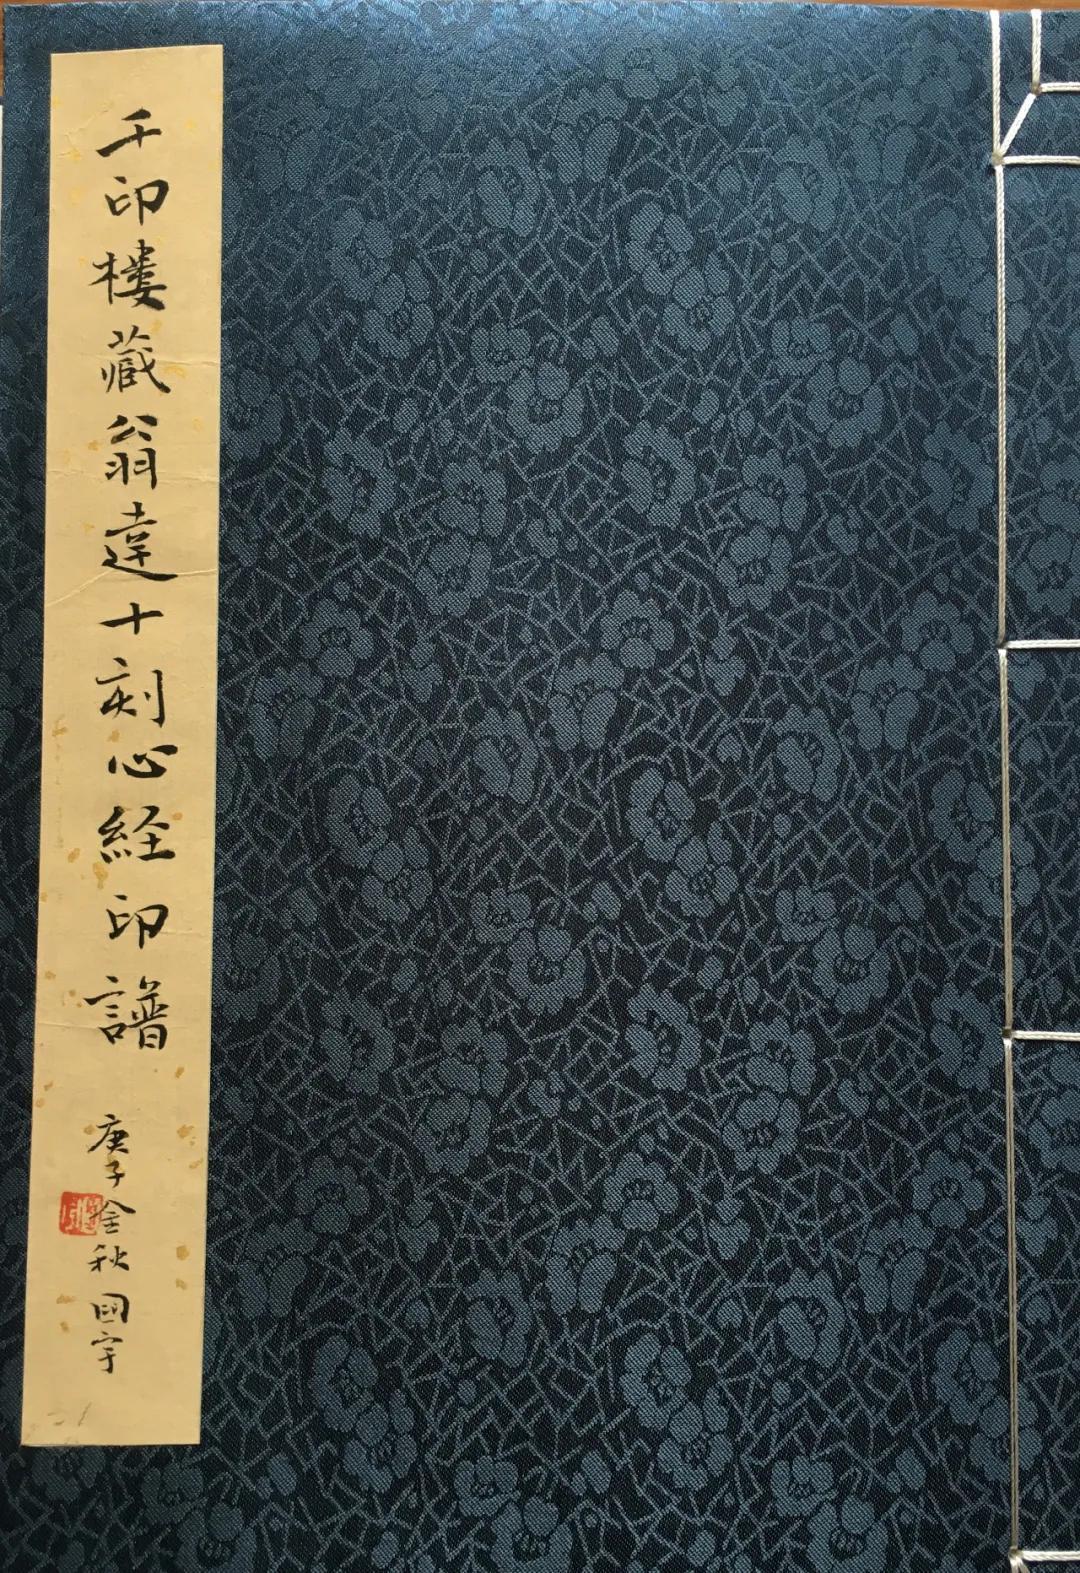 千印樓藏翁達十刻心経印譜
庚子金秋國宇